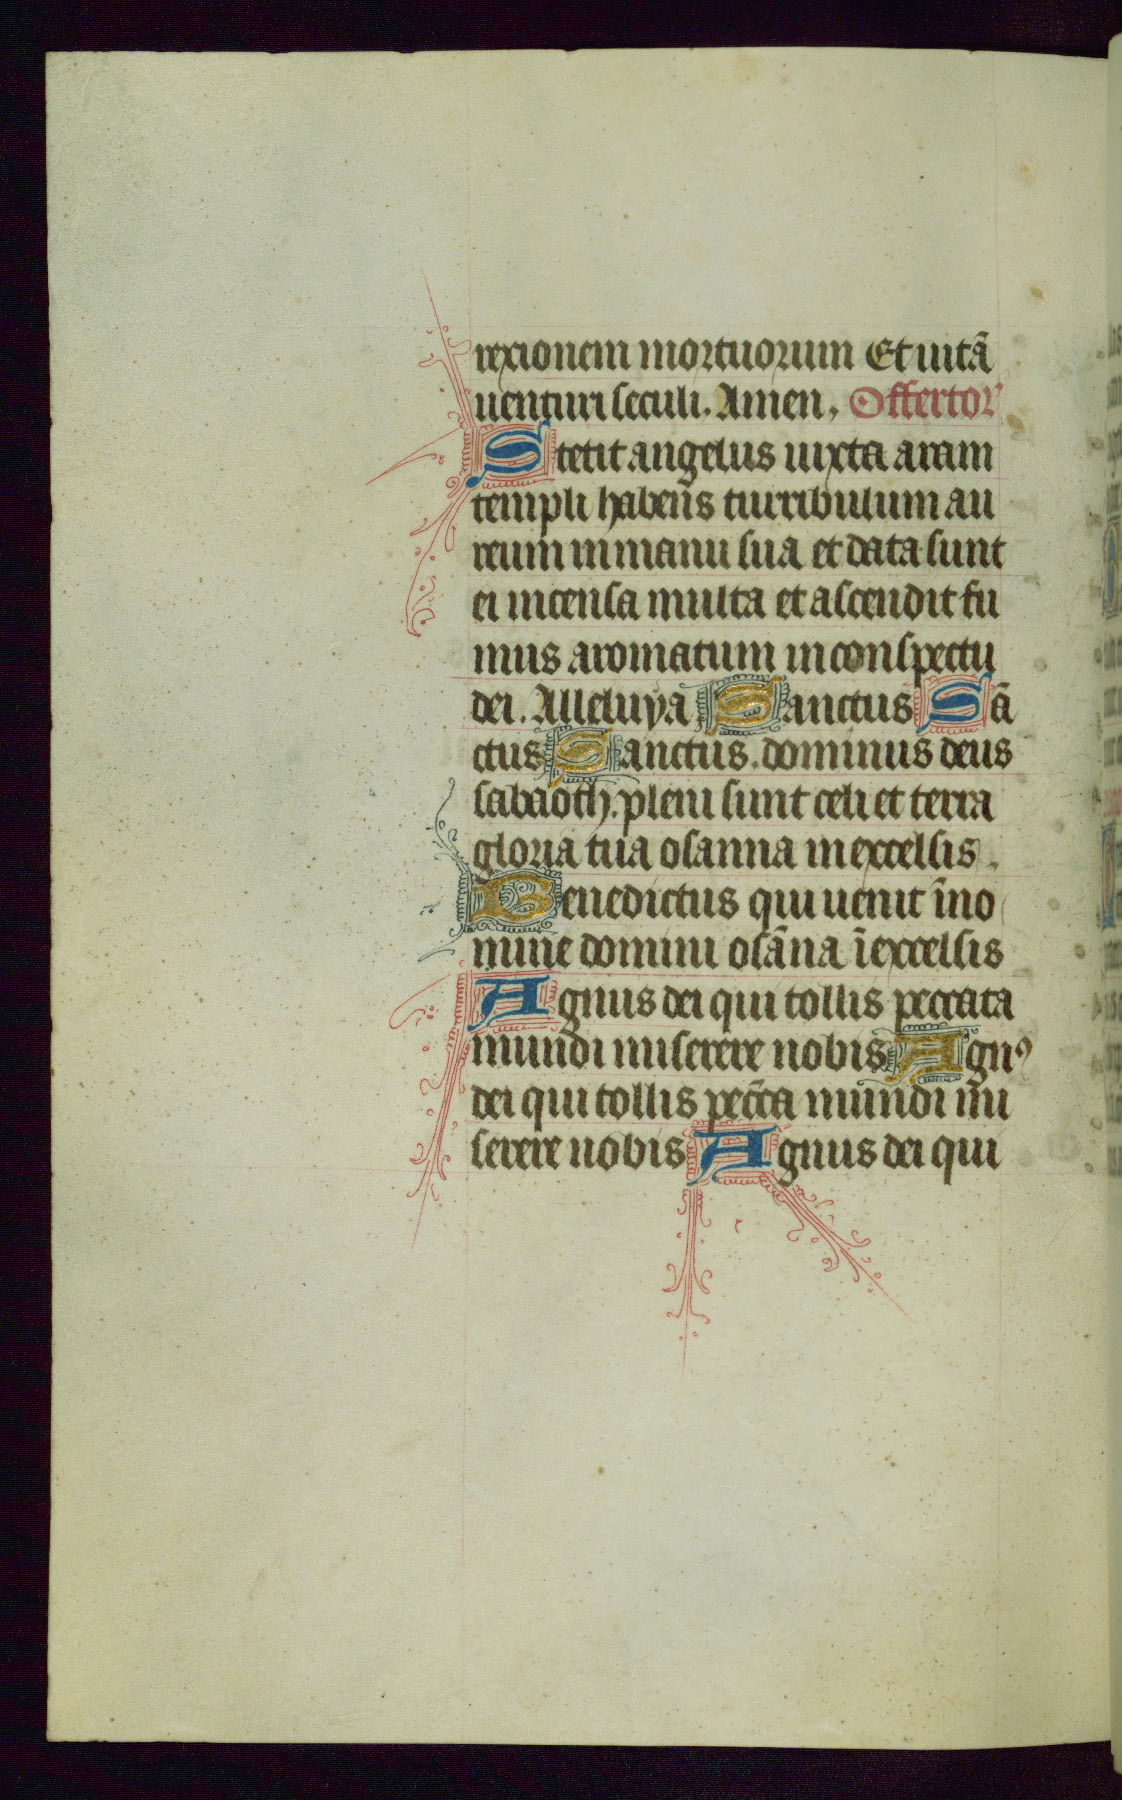 rexionem mortuorum Et uitā
uenturi seculi. Amen. Offertor
Stetit angelus iuxta aram
templi habens turribulum au
reum in manu sua et data sunt
ei incensa multa et ascendit fu
mus aromatum in conspectu
dei. Alleluya Sanctus Sā
ctus Sanctus. dominus deus
sabaoth. pleni sunt celi et terra
gloria tua osanna in excelsis.
Benedictus qui uenit ī no
mine domini osāna ī excelsis
Agnus dei qui tollis peccata
mundi miserere nobis Agnꝰ
dei qui tollis pecc̄a mundi mi
serere nobis Agnus dei qui